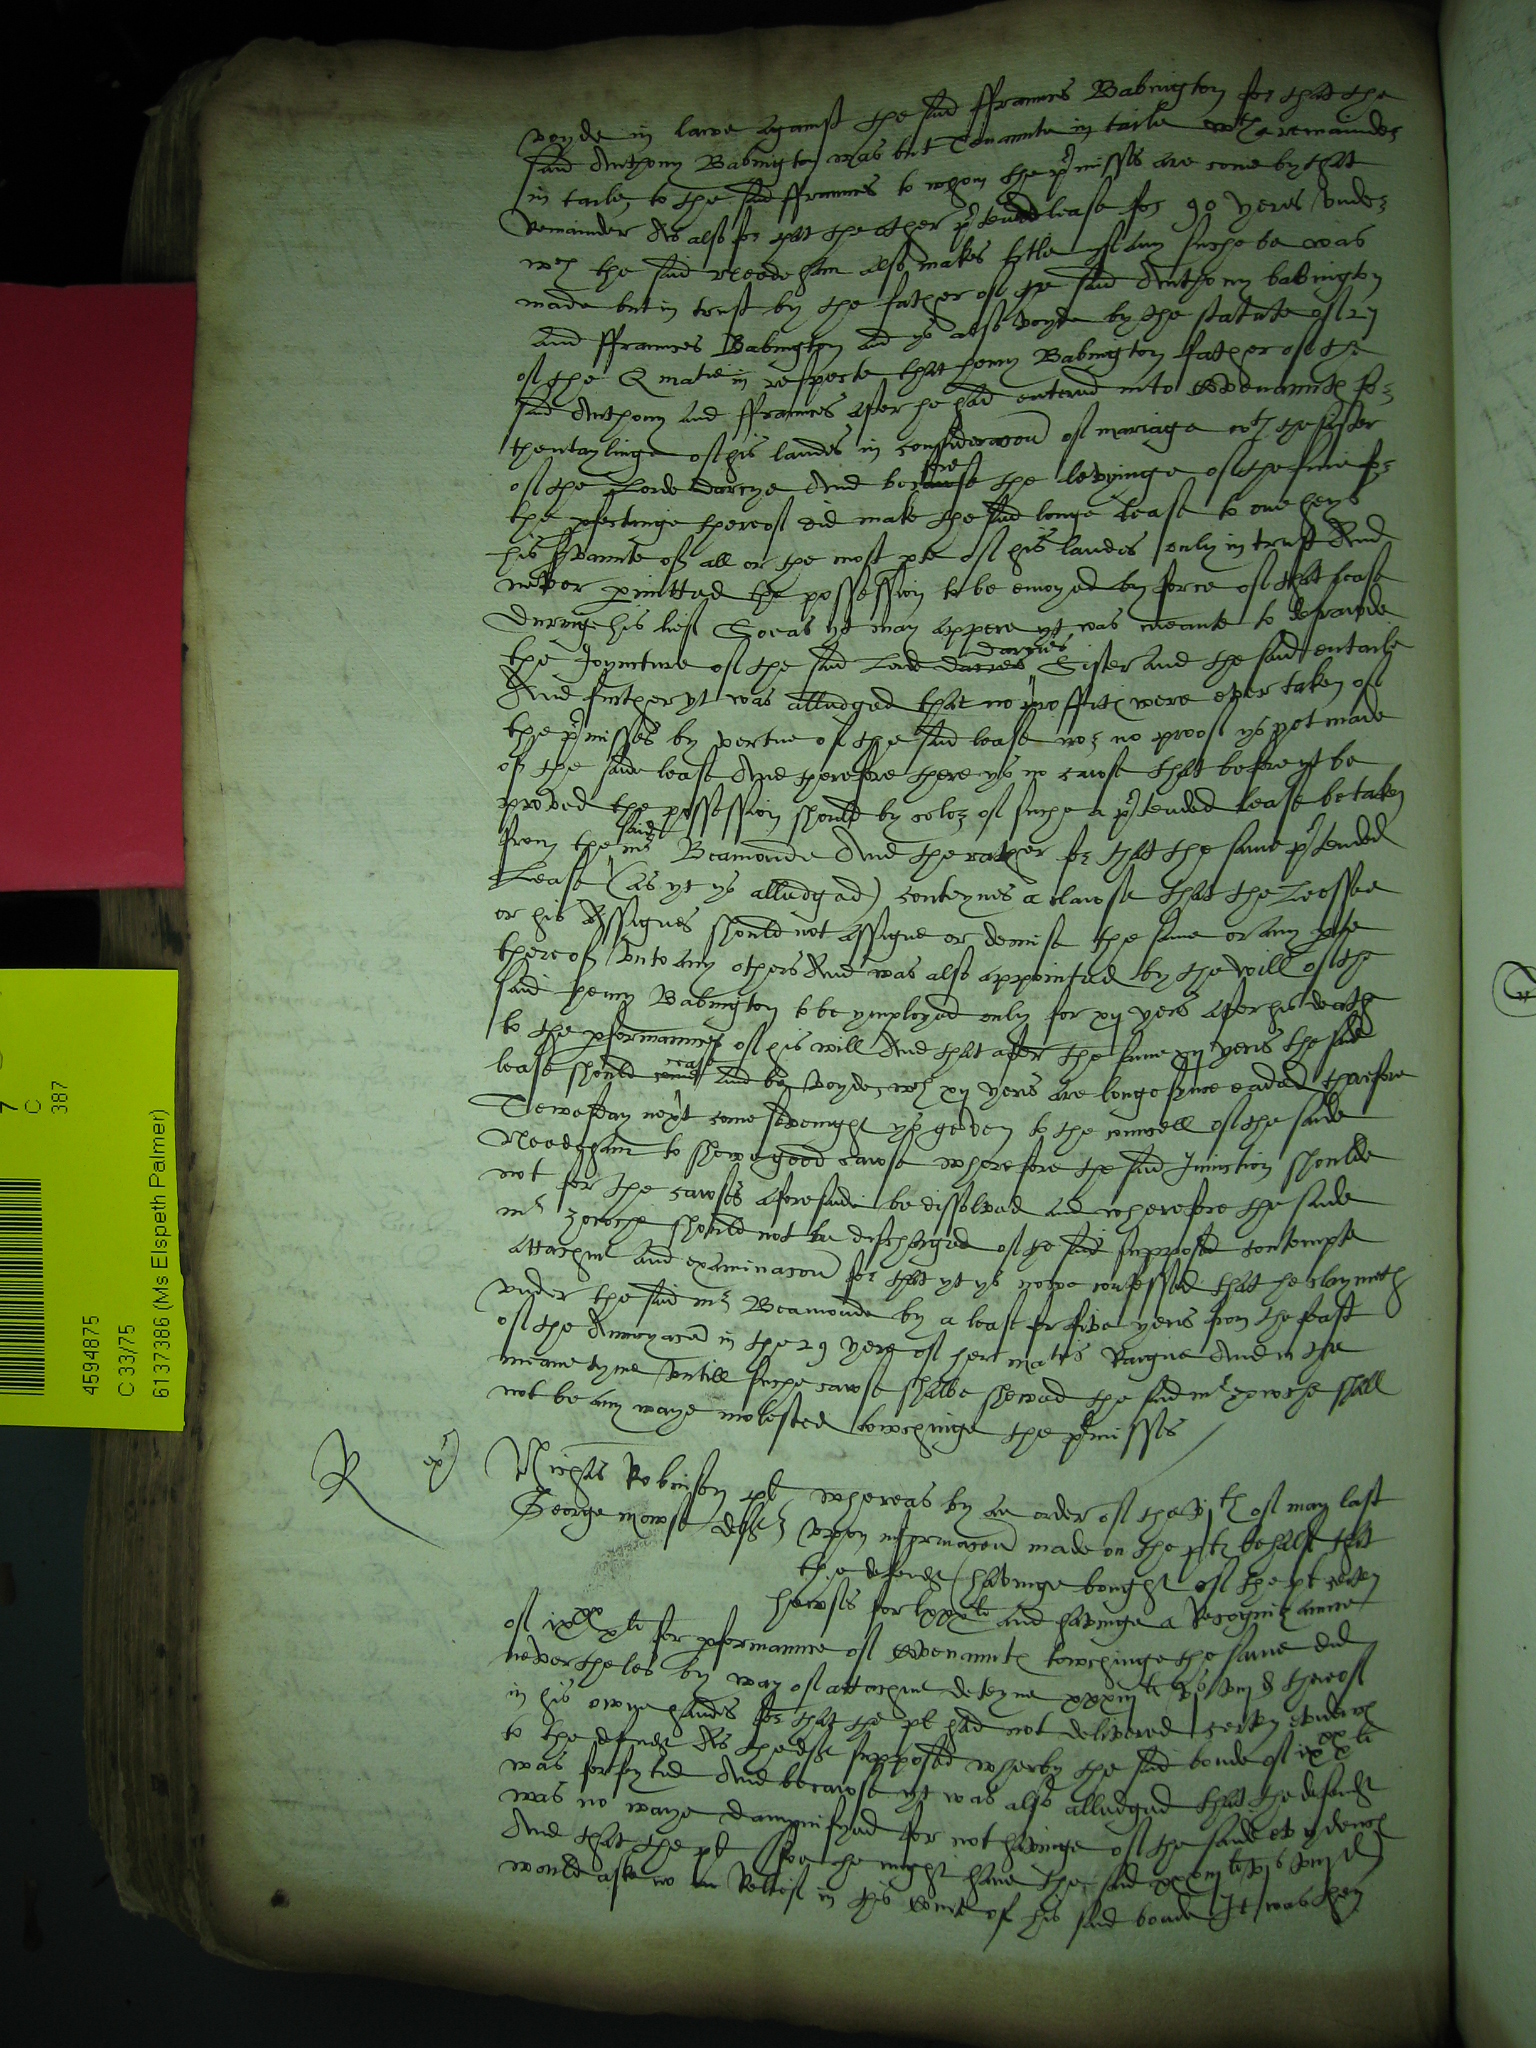 voyde in lawe against the said ffraunces Babington for that the
said Anthony Babington was but Tenannte in taile wth a remainder
in taile to the said ffraunces to whom the p'misses are come by that
Remainder As also for that the other p'tended lease for 90 yeres vnder
wch the said Needeham also makes title yf any suche be was
made but in trust by the father of the said Anthony babington
And ffraunces Babington ad ys also voyde by the statute of 27
of the Q matie in respecte that henry Babington father of the
said Anthony and ffraunces after he had entered into Covenannts for
thentaylinge of his landes in consideracon of mariage wth the sister
of the Lorde Darcye And before the levyinge of the fine for
the pfectinge thereof did make the said longe lease to one heys
his servannte of all or the most pte of his landes only in trust And
never pmitted the possession to be enioyed by force of that lease
Duringe his lief Soe as yt may appere yt was meante to defrawde
the Joyncture of the said Lord Darcies Sister and the said entaile
And further yt was alledged that no proffitts were ever taken of
the p'misses by vertue of the said lease nor no proof ys yet made
of the saide lease And therefore there ys no cawse that before yt be
proved the possession should by color of suche a p'tended lease be taken
from the said mr Beamonde And the rather for that the same p'tended
Lease (as yt ys alledged) conteynes a clawse that the Leassee
or his Assignes should not assigne or demise the same or any pte
thereof vnto any others And was also appointed by the will of the
said henry Babington to be ymployed only for xij yers after his death
to the pformannce of his will And that after the same xij yeris the said
lease should cease And be voyde, wch xij yeris are longe synce eaded therefore
Tewesday next come sevenight ys geven to the counsell of the saide
Needeham to shewe good cawse wherefore the said Iniunction shoulde
not for the cawses aforesaide be dissolved and wherefore the saide
mr Zowche should not be discharged of the said supposed contempte
Attachmt and examinacon for that yt ys nowe confessed that he claymeth
vnder the said mr Beamonde by a lease for five yeris from the feast
of the Annuyacon in the 29 yere of her maties Raigne And in the
meane tyme vntill suche cawse shalbe shewed the said mr Zowche shall
not be any waye molested towchinge the p'misses
R
Michas Robinson pl
George mowse deft
whereas by an order of the vjth of may last
vpon informacon made on the plts behalf that
the defendt (havinge bought of the pl certen
howses for lxxxli and havinge a Recognizannce
of ixxx xli for pformannce of Covenannts towchinge the same did
neverthelas by way of attachmt deteyne xxxiijli vjs viijd thereof
in his owne handes for that the pl had not delivered certen evidence
to the defendt As the deft supposed wherby the said bonde of ixxx xli
was forfeyted And becawse yt was also alledged that the defendt
was no waye dampnifyed for not havinge of the saide evydence
And that the pl (soe he might have the said xxxiijli vjs viijd
would aske no Relief in this courte of his said bonde It was then
4594875
C 33/75
6137386 (Ms Elspeth Palmer)
C
387